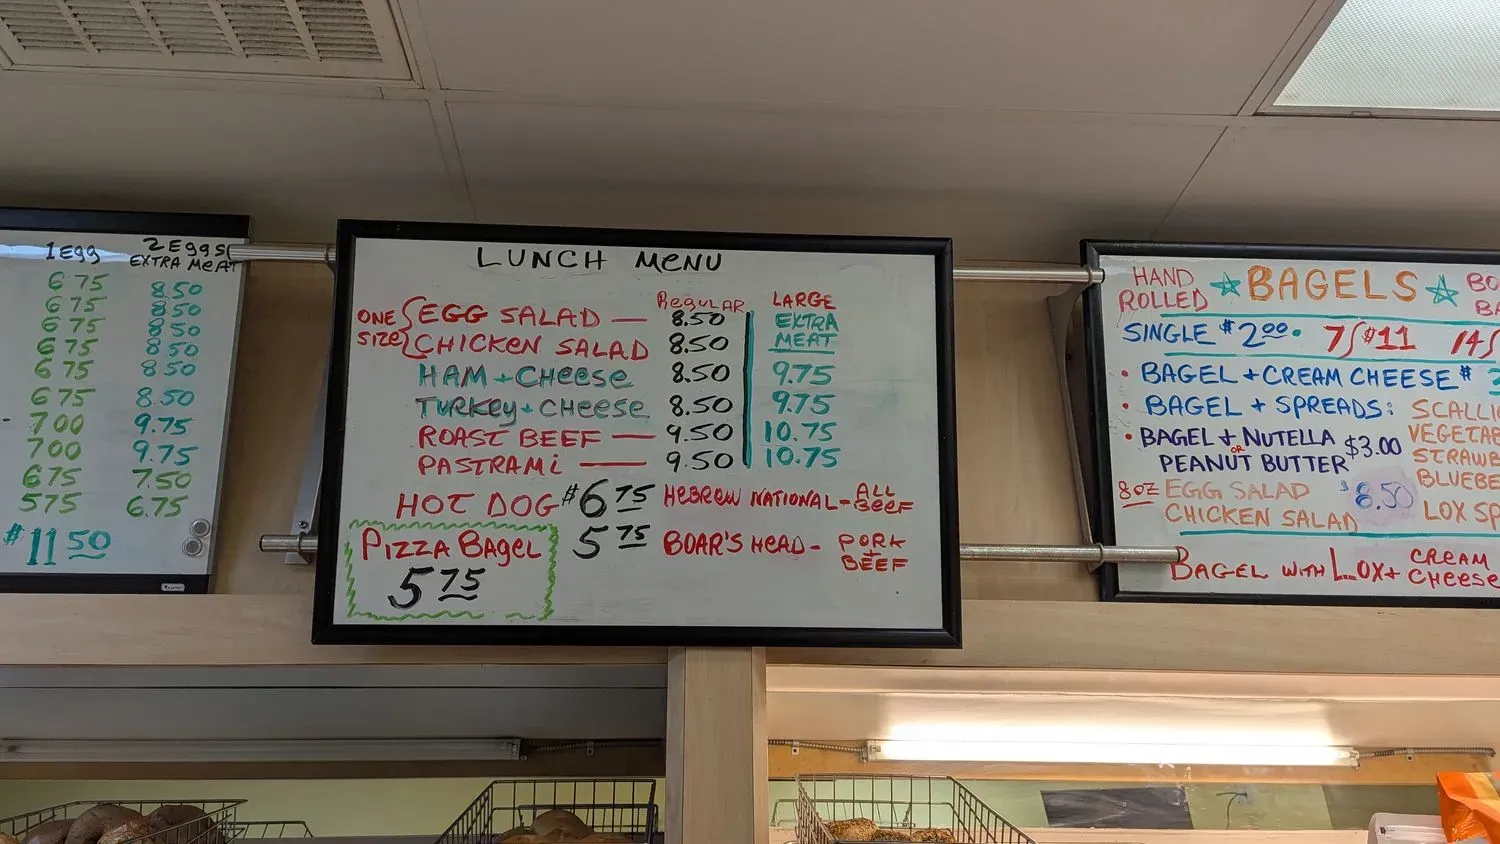 1 Egg 2 Eggs
EXTRA MEAT
6.75 8.50
6.75 8.50
6.75 8.50
6.75 8.50
6.75 8.50
6.75 8.50
7.00 9.75
7.00 9.75
6.75 7.50
5.75 6.75
$11.50
LUNCH MENU
REGULAR LARGE
ONE SIZE { EGG SALAD — 8.50 EXTRA
CHICKEN SALAD 8.50 MEAT
HAM + CHEESE 8.50 9.75
TURKEY + CHEESE 8.50 9.75
ROAST BEEF — 9.50 10.75
PASTRAMI — 9.50 10.75
HOT DOG $6.75 HEBREW NATIONAL - ALL BEEF
5.75 BOAR'S HEAD - PORK + BEEF
PIZZA BAGEL
5.75
HAND ROLLED ☆ BAGELS ☆
SINGLE $2.00 • 7/$11 14/
• BAGEL + CREAM CHEESE $
• BAGEL + SPREADS:
• BAGEL + NUTELLA
OR
PEANUT BUTTER $3.00
8OZ EGG SALAD $8.50
CHICKEN SALAD
LOX SP
BAGEL WITH LOX + CREAM CHEESE